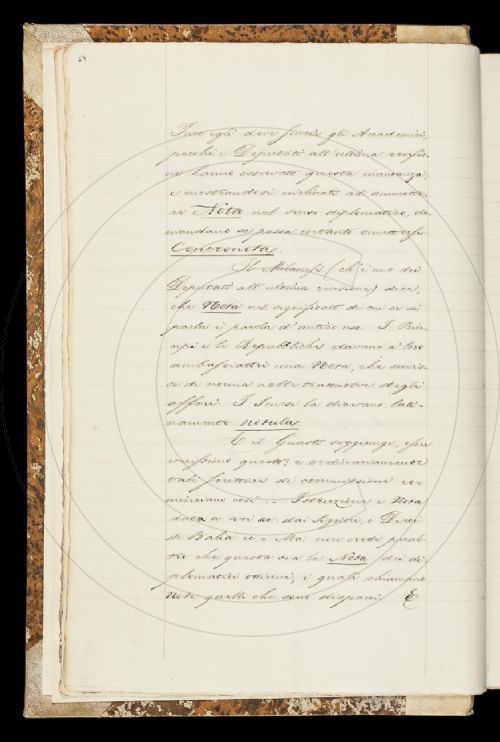 24
Fare egli deve sentire gli Accademici,
perchè i Deputati all'ultima revisio-
ne hanno osservato questa mancanza,
e mostrandosi inclinato ad ammette-
re Nota nel senso diplomatico, do-
mandano se possa intanto ammettersi
Contronota.
Il Milanesi (ch'è uno dei
Deputati all'ultima revisione) dice,
che Nota nel significato di cui or si
parla è parola d'antico uso. I Prin-
cipi e le Repubbliche davano a' loro
ambasciatori una Nota, che servis-
se di norma nelle trattative degli
affari. I Senesi la dicevano lati-
namente notula.
E il Guasti soggiunge, esser
verissimo questo; e ordinariamente
tali scritture di commissioni co-
minciano così: Istruzione e Nota
data a voi ec. dai Signori, e Dieci
di Balia ec. Ma non crede peral-
tro che questa sia la Nota dei di-
plomatici odierni, i quali chiamano
Note quelli che sono dispacci. E